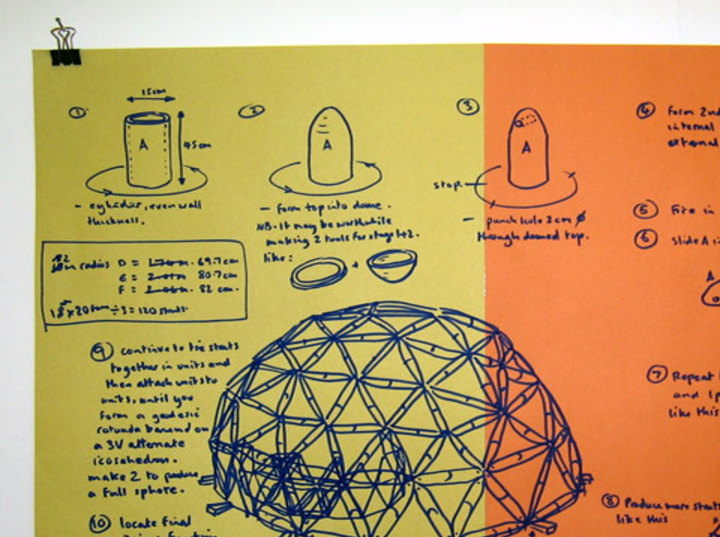 ①
15cm
A
45cm
thickness.
②
A
- Form top into dome.
NB-It may be worthwhile
making 2 tools for stage 1+2.
like:
+
③
A
stop.
- punch hole 2cm Ø
through domed top.
④ Form 2nd
internal
external
⑤ Fire in
⑥ Slide A i
A
⑦ Repeat
and 1p
like this
⑧ Produce more struts
like this
radius D = 69.7cm
E = 80.7cm
F = 82 cm.
÷ 5 = 120 struts.
⑨ continue to tie struts
together in units and
then attach units to
units, until you
form a geodesic
rotunda based on
a 3V alternate
icosahedron.
make 2 to produce
a full sphere.
⑩ locate final